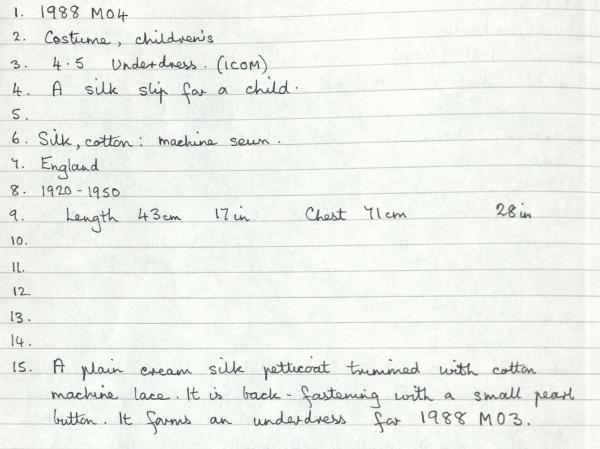 1. 1988 M04
2. Costume, children's
3. 4.5 Underdress. (ICOM)
4. A silk slip for a child.
5.
6. Silk, cotton: machine sewn.
7. England
8. 1920-1950
9. Length 43cm 17in Chest 71cm 28in
10.
11.
12.
13.
14.
15. A plain cream silk petticoat trimmed with cotton
machine lace. It is back-fastening with a small pearl
button. It forms an underdress for 1988 M03.